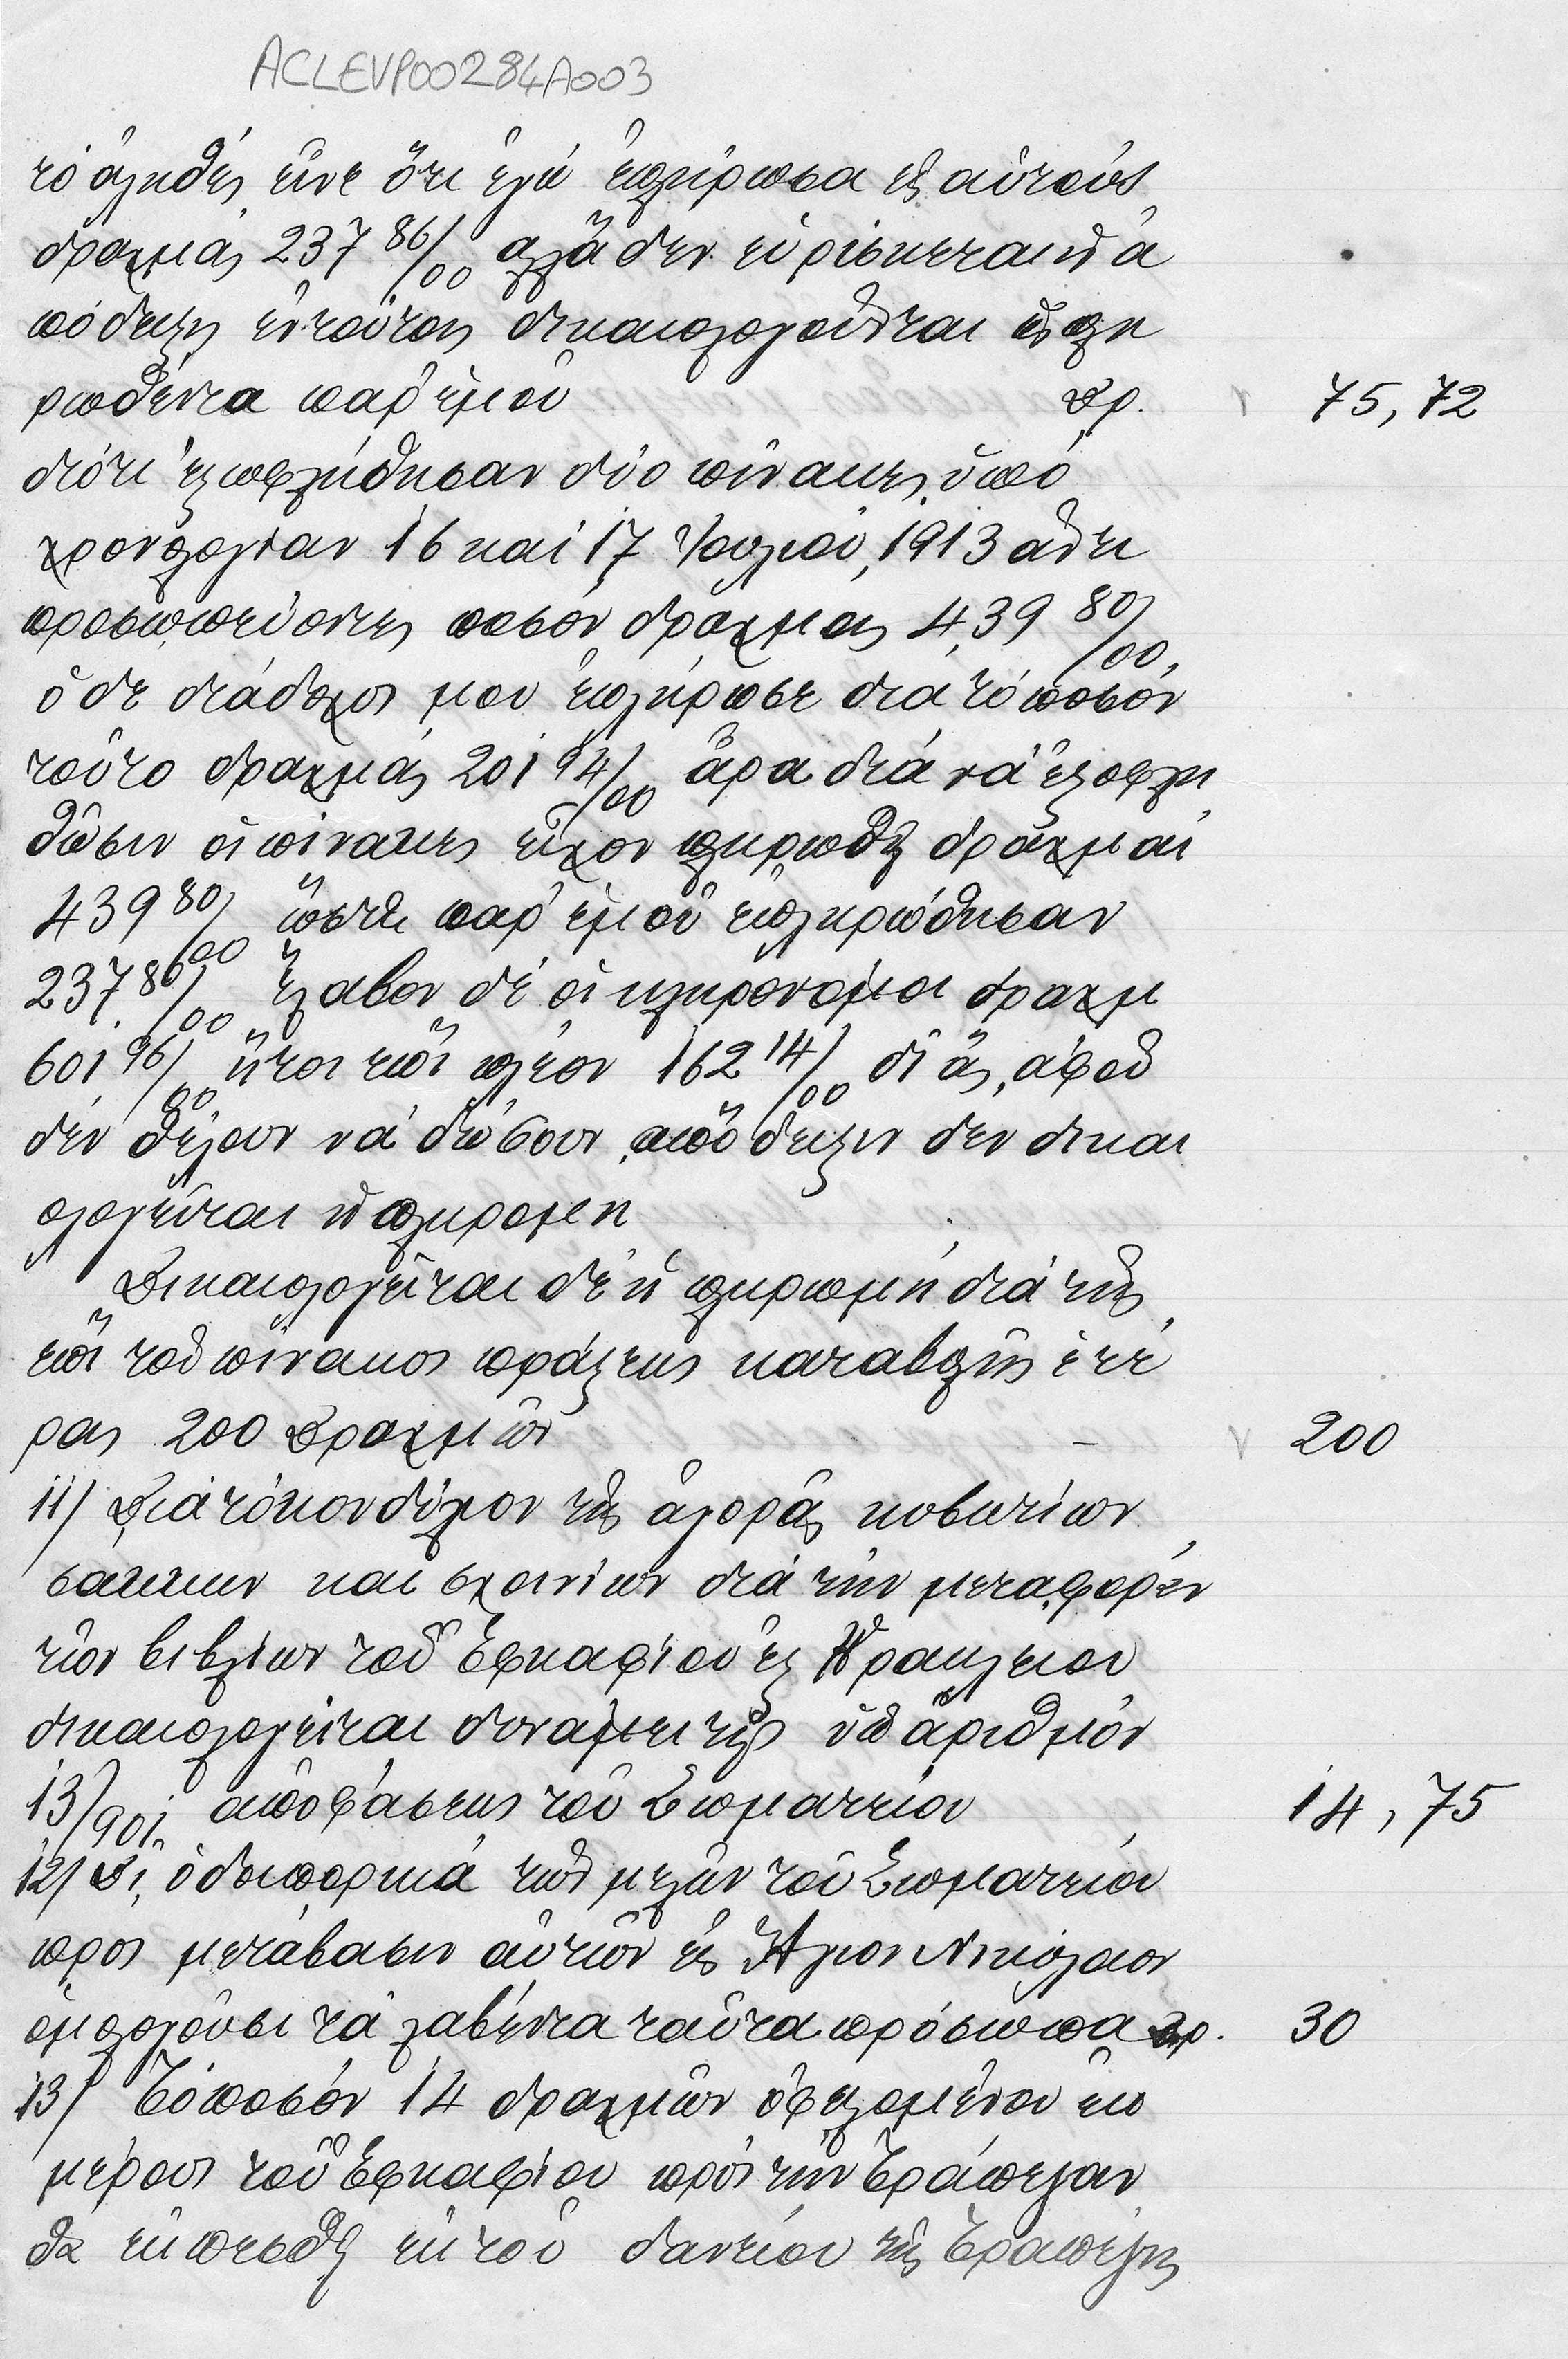 ACLEVP00284A003
τό ἀληθές εἶνε ὅτι ἐγώ ἐπλήρωσα εἰς αὐτούς
δραχμάς 237 86/00 ἀλλά δεν εὑρίσκεται ἡ ἀ
πόδειξις ἐντούτοις δικαιολογοῦνται ὡς πλη
ρωθέντα παρ' ἐμοῦ Δρ. 75,72
διότι ἐξωφλήθησαν δύο πίνακες ὑπό
χρονολογίαν 16 καί 17 Ἰουλίου 1913 ἀντι
προσωπεύοντες ποσόν δραχμας 439 80/00,
ὁ δε διάδοχος μου ἐπλήρωσε διά τό ποσόν
τοῦτο δραχμάς 201 94/00 ἄρα διά νά ἐξοφλη
θῶσιν οἱ πίνακες εἶχον πληρωθῆ δραχμαί
439 80/00 ὥστε παρ' ἐμοῦ ἐπληρώθησαν
237 86/00 ἔλαβον δέ οἱ κληρονόμοι δραχμ
601 96/00 ἤτοι ἐπί πλέον 162 14/00 δι' ἅς, ἀφοῦ
δέν θέλουν νά δώσουν ἀπόδειξιν δεν δικαι
ολογεῖται ἡ πληρομή
Δικαιολογεῖται δε ἡ πληρωμή διά τῆς
ἐπί τοῦ πίνακος πράξεως καταβολῆς ἑτέ
ρας 200 Δραχμῶν - 200
11/ Διά τόκον δύλον τῆς ἀγορᾶς κιβωτίων
σάκκων και σχοινίων διά τήν μεταφοράν
τῶν βιβλίων τοῦ Ἐφκαφίου ἐξ Ἡρακλείου
δικαιολογεῖται δυνάμει τῆς ὑπ' ἀριθμόν
13/901 ἀποφάσεως τοῦ Σωματείου 14,75
12/ Δι' ὁδοιπορικά τῶν μελῶν τοῦ Σωματείου
προς μετάβασιν αὐτῶν εἰς Ἅγιον Νικόλαον
ὁμολογοῦσι τά λαβέντα ταῦτα πρόσωπα Δρ. 30
13/ Τό ποσόν 14 δραχμῶν ὀφειλομένου ἐκ
μέρους τοῦ Ἐφκαφίου πρός τήν Τράπεζαν
θα εἰσπεσθῆ ἐκ τοῦ δανείου τῆς Τραπέζης